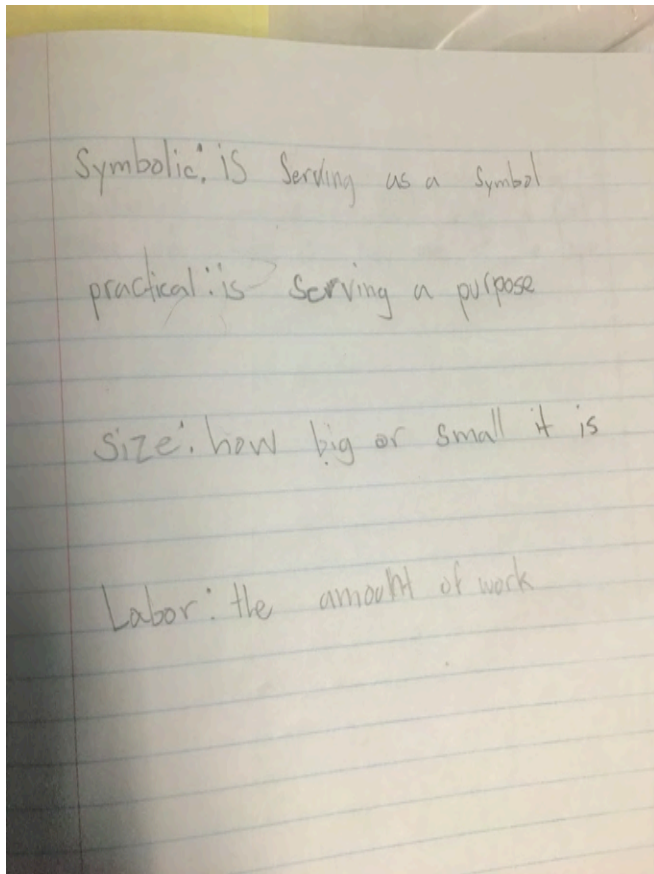 Symbolic: is Serving as a Symbol
practical: is Serving a purpose
Size: how big or small it is
Labor: the amount of work